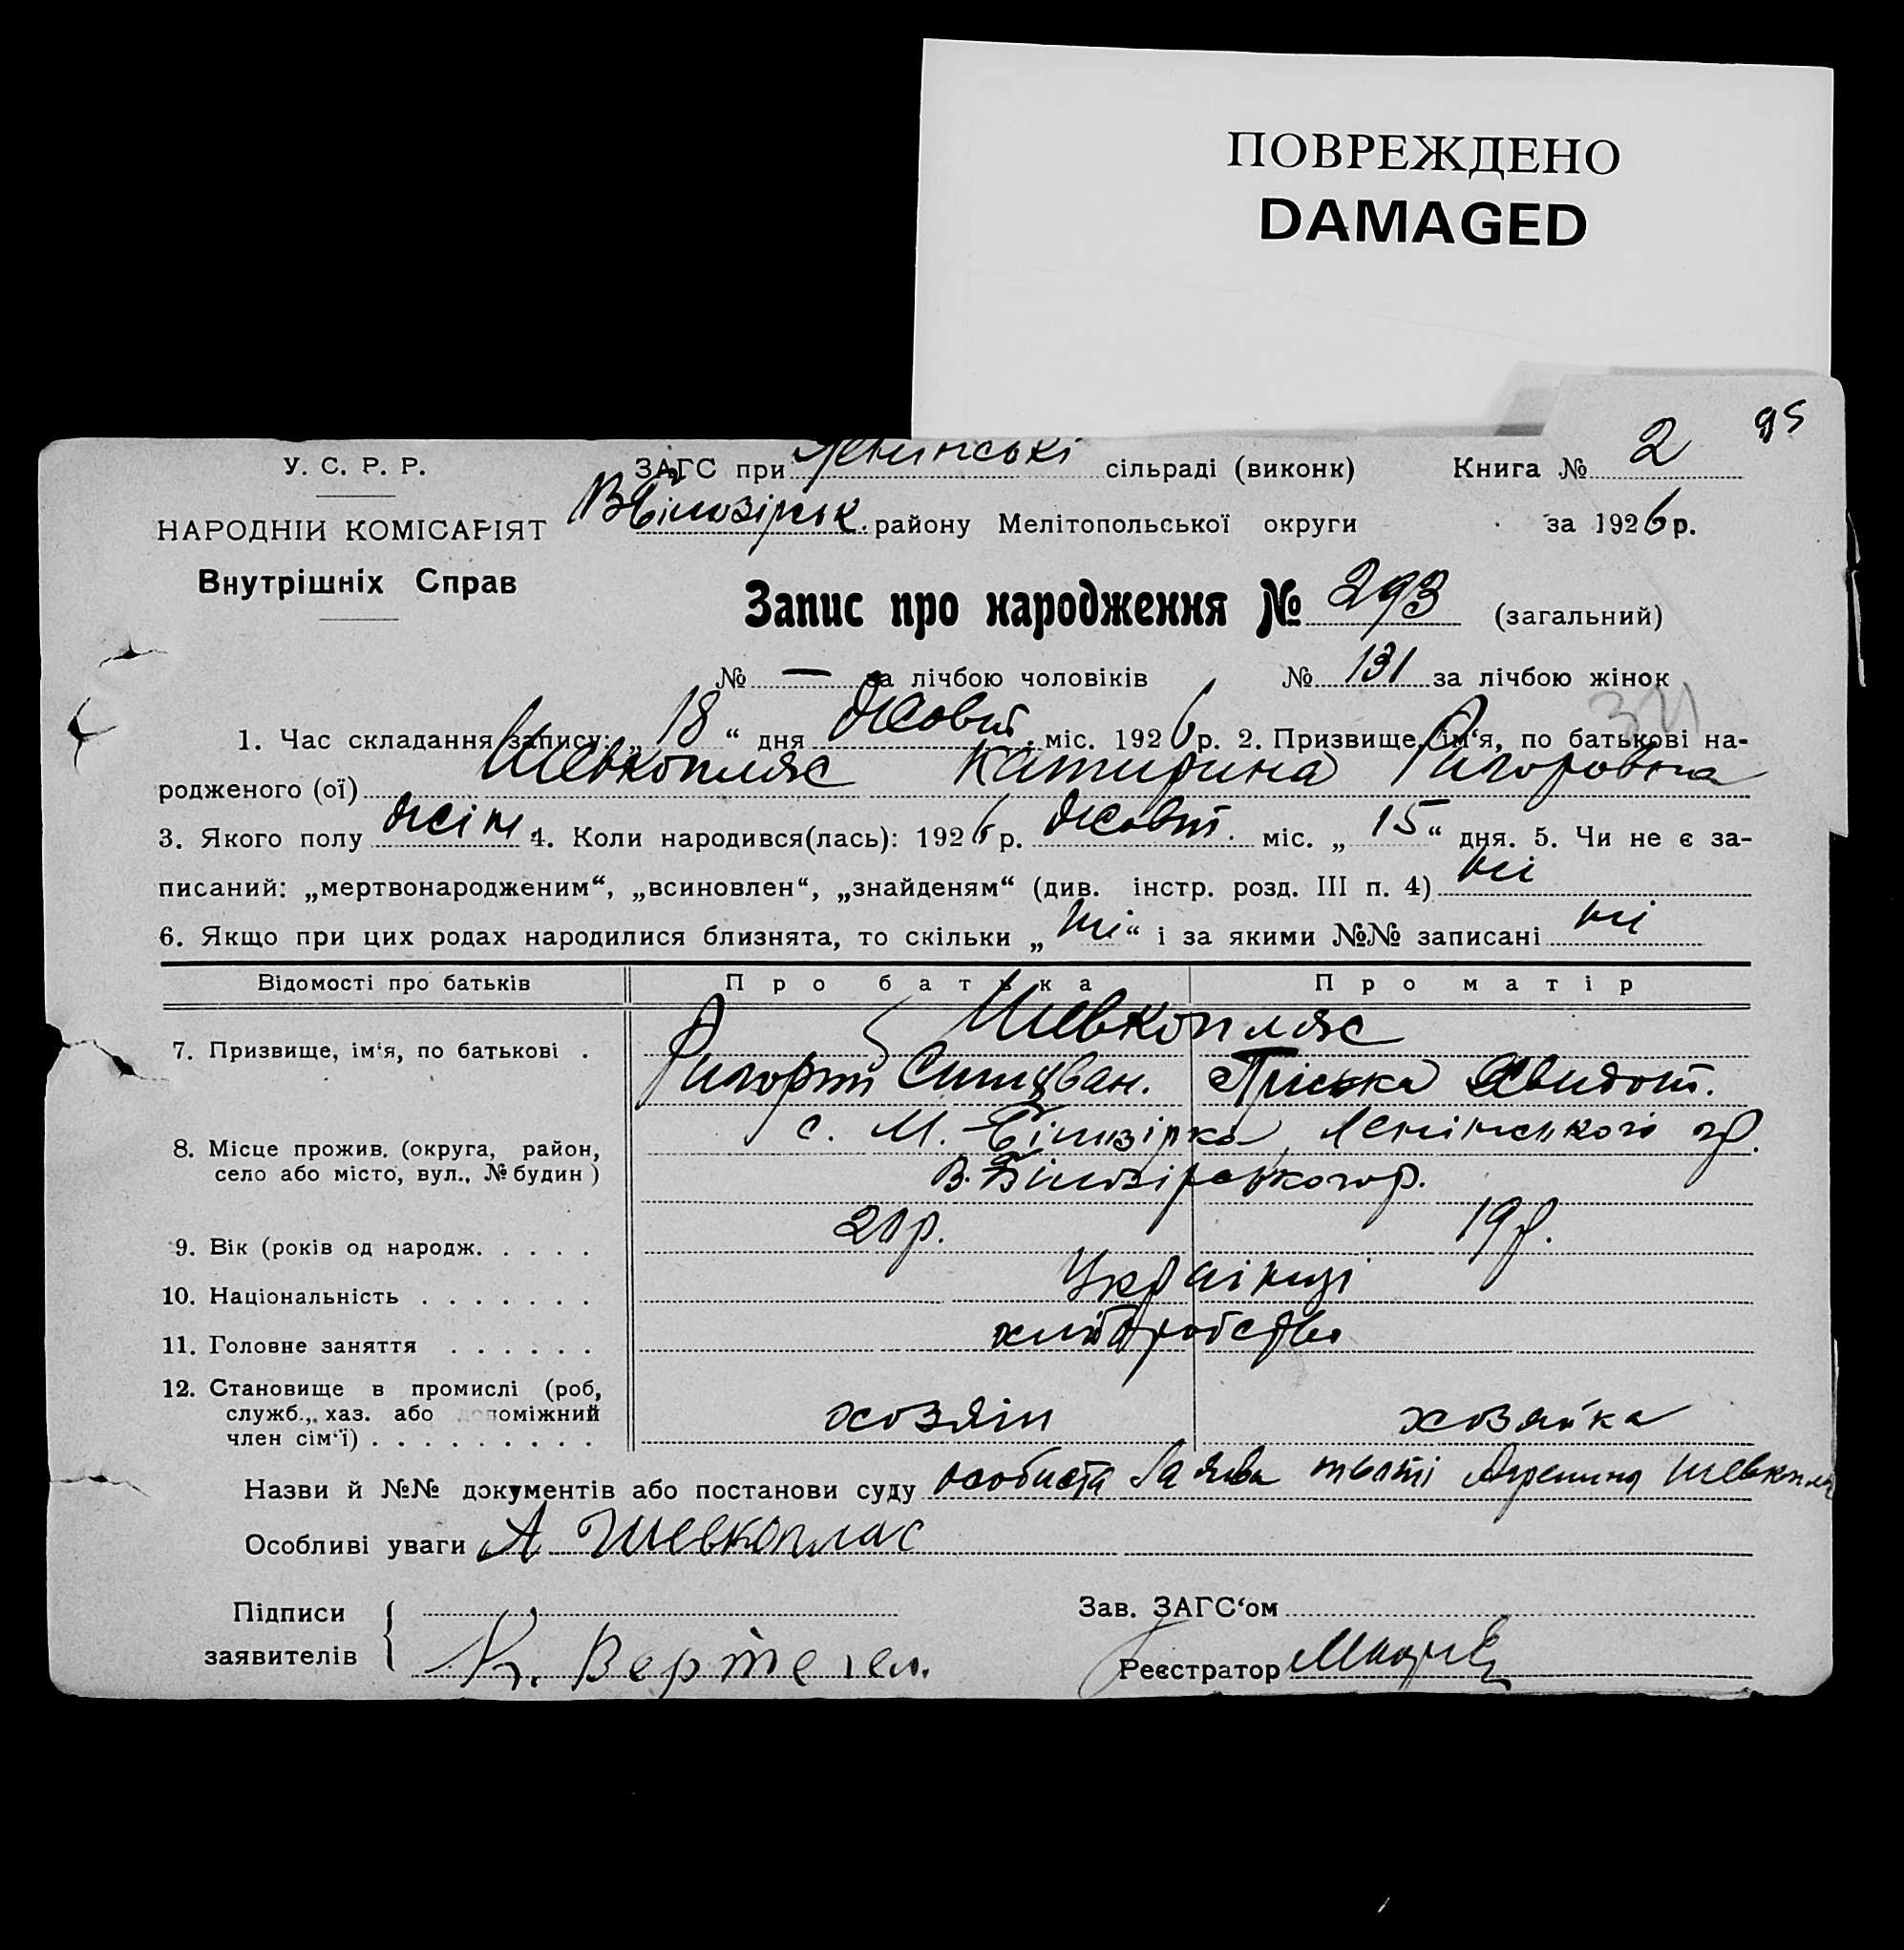 ПОВРЕЖДЕНО
DAMAGED
95
У. С. Р. Р.
ЗАГС при Ленинські сільраді (виконк) Книга № 2
НАРОДНІЙ КОМІСАРІЯТ
Внутрішніх Справ
В Білозірськ. району Мелітопольської округи за 1926 р.
Запис про народження № 293 (загальний)
№ — за лічбою чоловіків № 131 за лічбою жінок
1. Час складання запису: „ 18 “ дня Жовт. міс. 1926 р. 2. Призвище, ім‘я, по батькові на-
родженого (ої) Шевкопляс Катирина Григоровна
3. Якого полу жін. 4. Коли народився(лась): 1926 р. Жовт. міс. „ 15 “ дня. 5. Чи не є за-
писаний: „мертвонародженим“, „всиновлен“, „знайденям“ (див. інстр. розд. III п. 4) ні
6. Якщо при цих родах народилися близнята, то скільки „ ні “ і за якими №№ записані ні
Відомості про батьків Про батька Про матір
7. Призвище, ім‘я, по батькові . Шевкопляс
Пріська
8. Місце прожив. (округа, район, село або місто, вул., № будин) с. М. Білозірка, Ленінського
В. Білозірського р.
9. Вік (років од народж. . . . . 21 р. 19 р.
10. Національність . . . . . . . Українці
11. Головне заняття . . . . . . хліборобство
12. Становище в промислі (роб, служб., хаз. або допоміжний член сім‘ї) . . . . . . . . . хозяін хозяйка
Назви й №№ документів або постанови суду особиста заява Шевкопляс
Особливі уваги А Шевкоплас
Підписи Зав. ЗАГС‘ом
заявителів К. Вертегел. Реєстратор